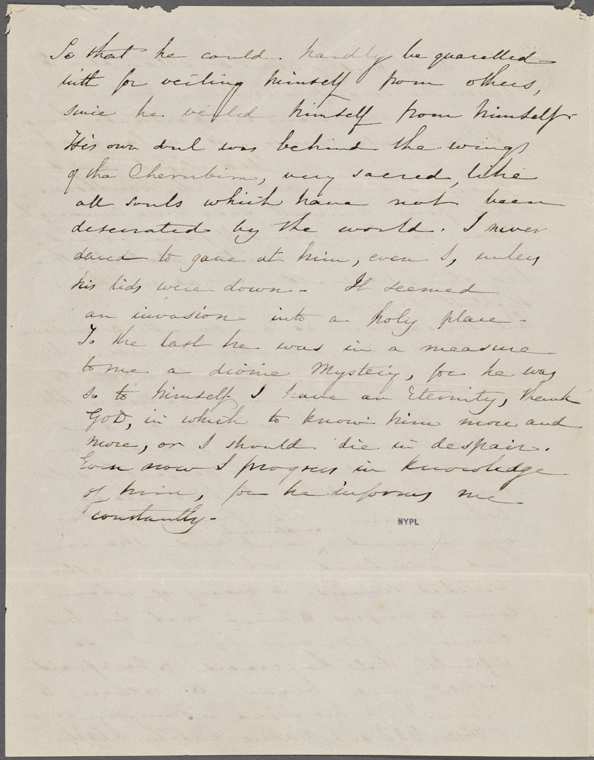 So that he could . hardly be quarelled
with for veiling himself from others,
since he veiled himself from himself.
His own soul was behind the wings
of the Cherubim, very sacred, like
all souls which have not been
desecrated by the world. I never
dared to gaze at him, even I, unless
his lids were down - It seemed
an invasion into a holy place -
To the last he was in a measure
to me a divine Mystery, for he was
so to himself. I have an Eternity, thank
GOD, in which to know him more and
more, or I should die in despair.
Even now I progress in knowledge
of him, for he informs me
constantly -
NYPL